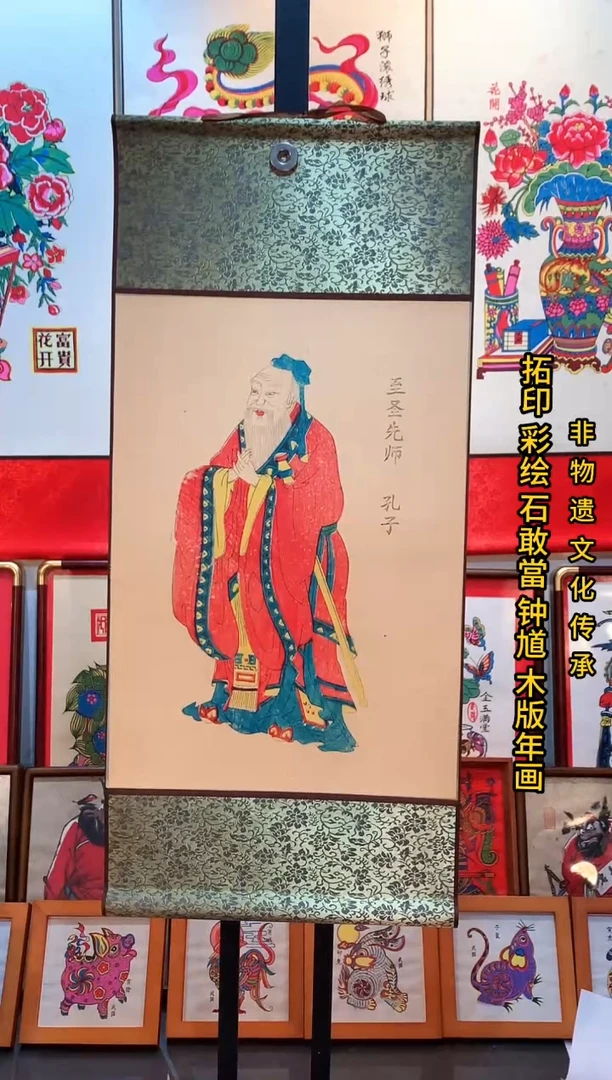 狮子滚绣球
花開
富貴
花开
至圣先师 孔子
非物遗文化传承
拓印 彩绘 石敢當 钟馗 木版年画
金玉满堂